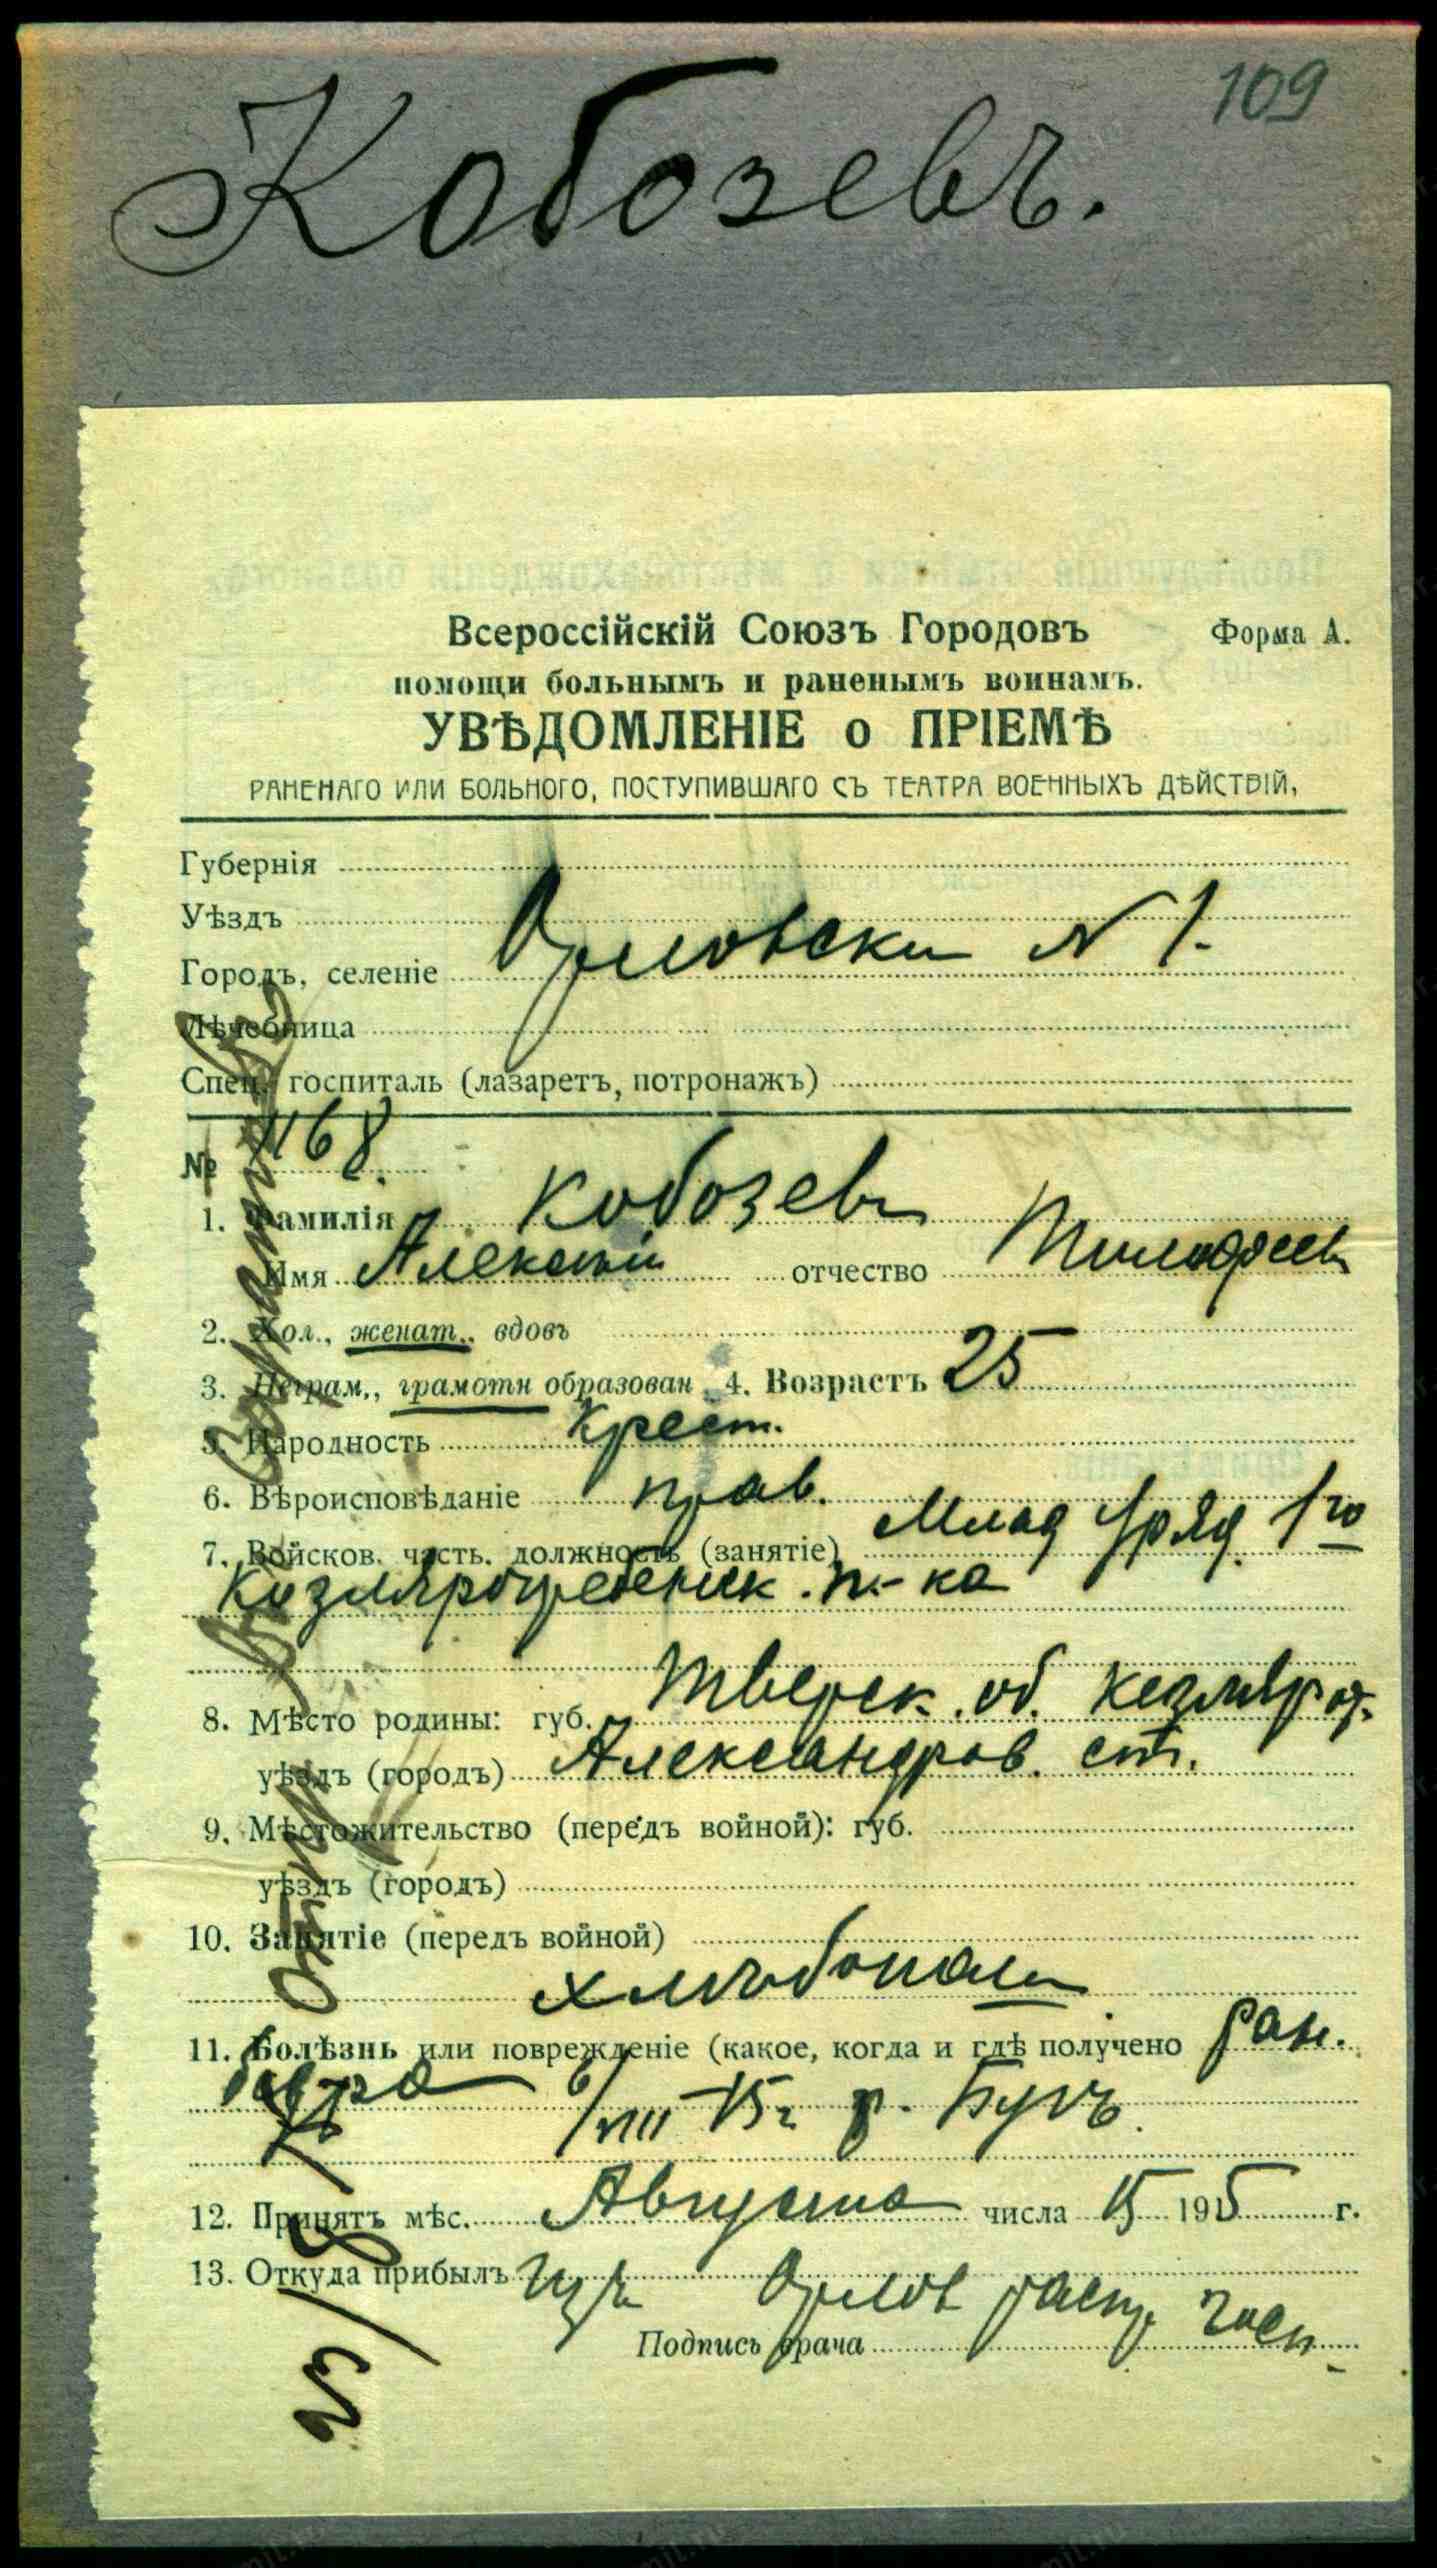 109
Кобозевъ.
Всероссійскій Союзъ Городовъ
Форма А.
помощи больнымъ и раненымъ воинамъ.
УВѢДОМЛЕНІЕ о ПРІЕМѢ
РАНЕНАГО ИЛИ БОЛЬНОГО, ПОСТУПИВШАГО СЪ ТЕАТРА ВОЕННЫХЪ ДѢЙСТВІЙ,
Губернія
Уѣздъ
Городъ, селеніе Орловски N 1.
Лѣчебница
Спец. госпиталь (лазаретъ, потронажъ)
№ 1168.
1. Фамилія Кобозевъ
Имя Алексѣй отчество
2. Хол., женат., вдовъ
3. Неграм., грамотн образован. 4. Возрастъ 25
5. Народность Крест.
6. Вѣроисповѣданіе прав.
7. Войсков. часть. должность (занятіе) Млад Уряд 1го
Кизлярогребенск. п.-ка
8. Мѣсто родины: губ. Тверск. об. Кизлярот.
уѣздъ (городъ) Александров. ст.
9. Мѣстожительство (передъ войной): губ.
уѣздъ (городъ)
10. Занятіе (передъ войной)
хлѣбопаш
11. Болѣзнь или поврежденіе (какое, когда и гдѣ получено ран.
бедра 6/VIII 15г р. Бугъ.
12. Принятъ мѣс. Августа числа 15 1915 г.
13. Откуда прибылъ Изъ Орлов расп. госп.
Подпись врача